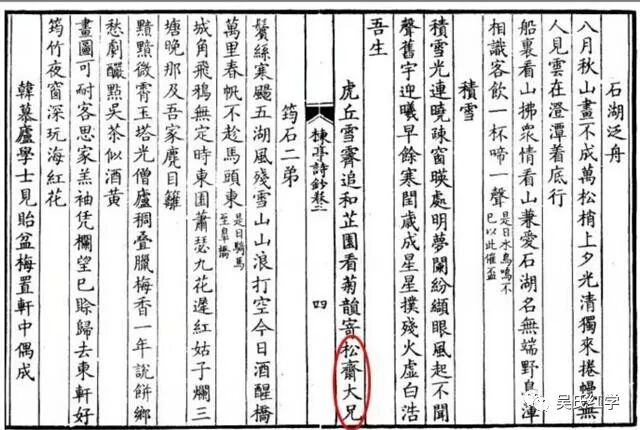 石湖泛舟
八月秋山畫不成萬松梢上夕光清獨來捲幔無
人見雲在澄潭着底行
船裏看山拂衆情看山兼愛石湖名無端野鳥渾
相識客飲一杯啼一聲是日水鳥鳴不
已以此催盃
積雪
積雪光連曉疎窗暎處明夢闌紛纈眼風起不聞
聲舊宇迎曦早餘寒閏歲成星星撲殘火虛白浩
吾生
虎丘雪霽追和芷園看菊韻寄松齋大兄
楝亭詩鈔卷二
四
筠石二弟
鬢絲寒颺五湖風殘雪山山浪打空今日酒醒橋
萬里春帆不趁馬頭東是日騎馬
至皐橋
城角飛鴉無定時東園蕭瑟九花遲紅姑子爛三
塘晚那及吾家麂目籬
微霄玉塔光僧廬稠疊臘梅香一年説餅鄉
愁劇釅點吳茶似酒黃
畫圖可耐客思家羔袖凭欄望已賒歸去東軒好
筠竹夜窗深玩海紅花
韓慕廬學士見貽盆梅置軒中偶成
吴氏红学